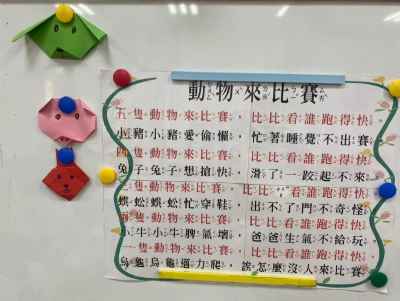 動物來比賽
五隻動物來比賽，比比看誰跑得快
小豬小豬愛偷懶，忙著睡覺不出賽
四隻動物來比賽，比比看誰跑得快
兔子兔子想搶快，滑了一跤起不來
三隻動物來比賽，比比看誰跑得快
蜈蚣蜈蚣忙穿鞋，出不了門不奇怪
兩隻動物來比賽，比比看誰跑得快
小牛小牛脾氣壞，爸爸生氣不給玩
一隻動物來比賽，比比看誰跑得快
烏龜烏龜努力爬，誒怎麼沒人來比賽